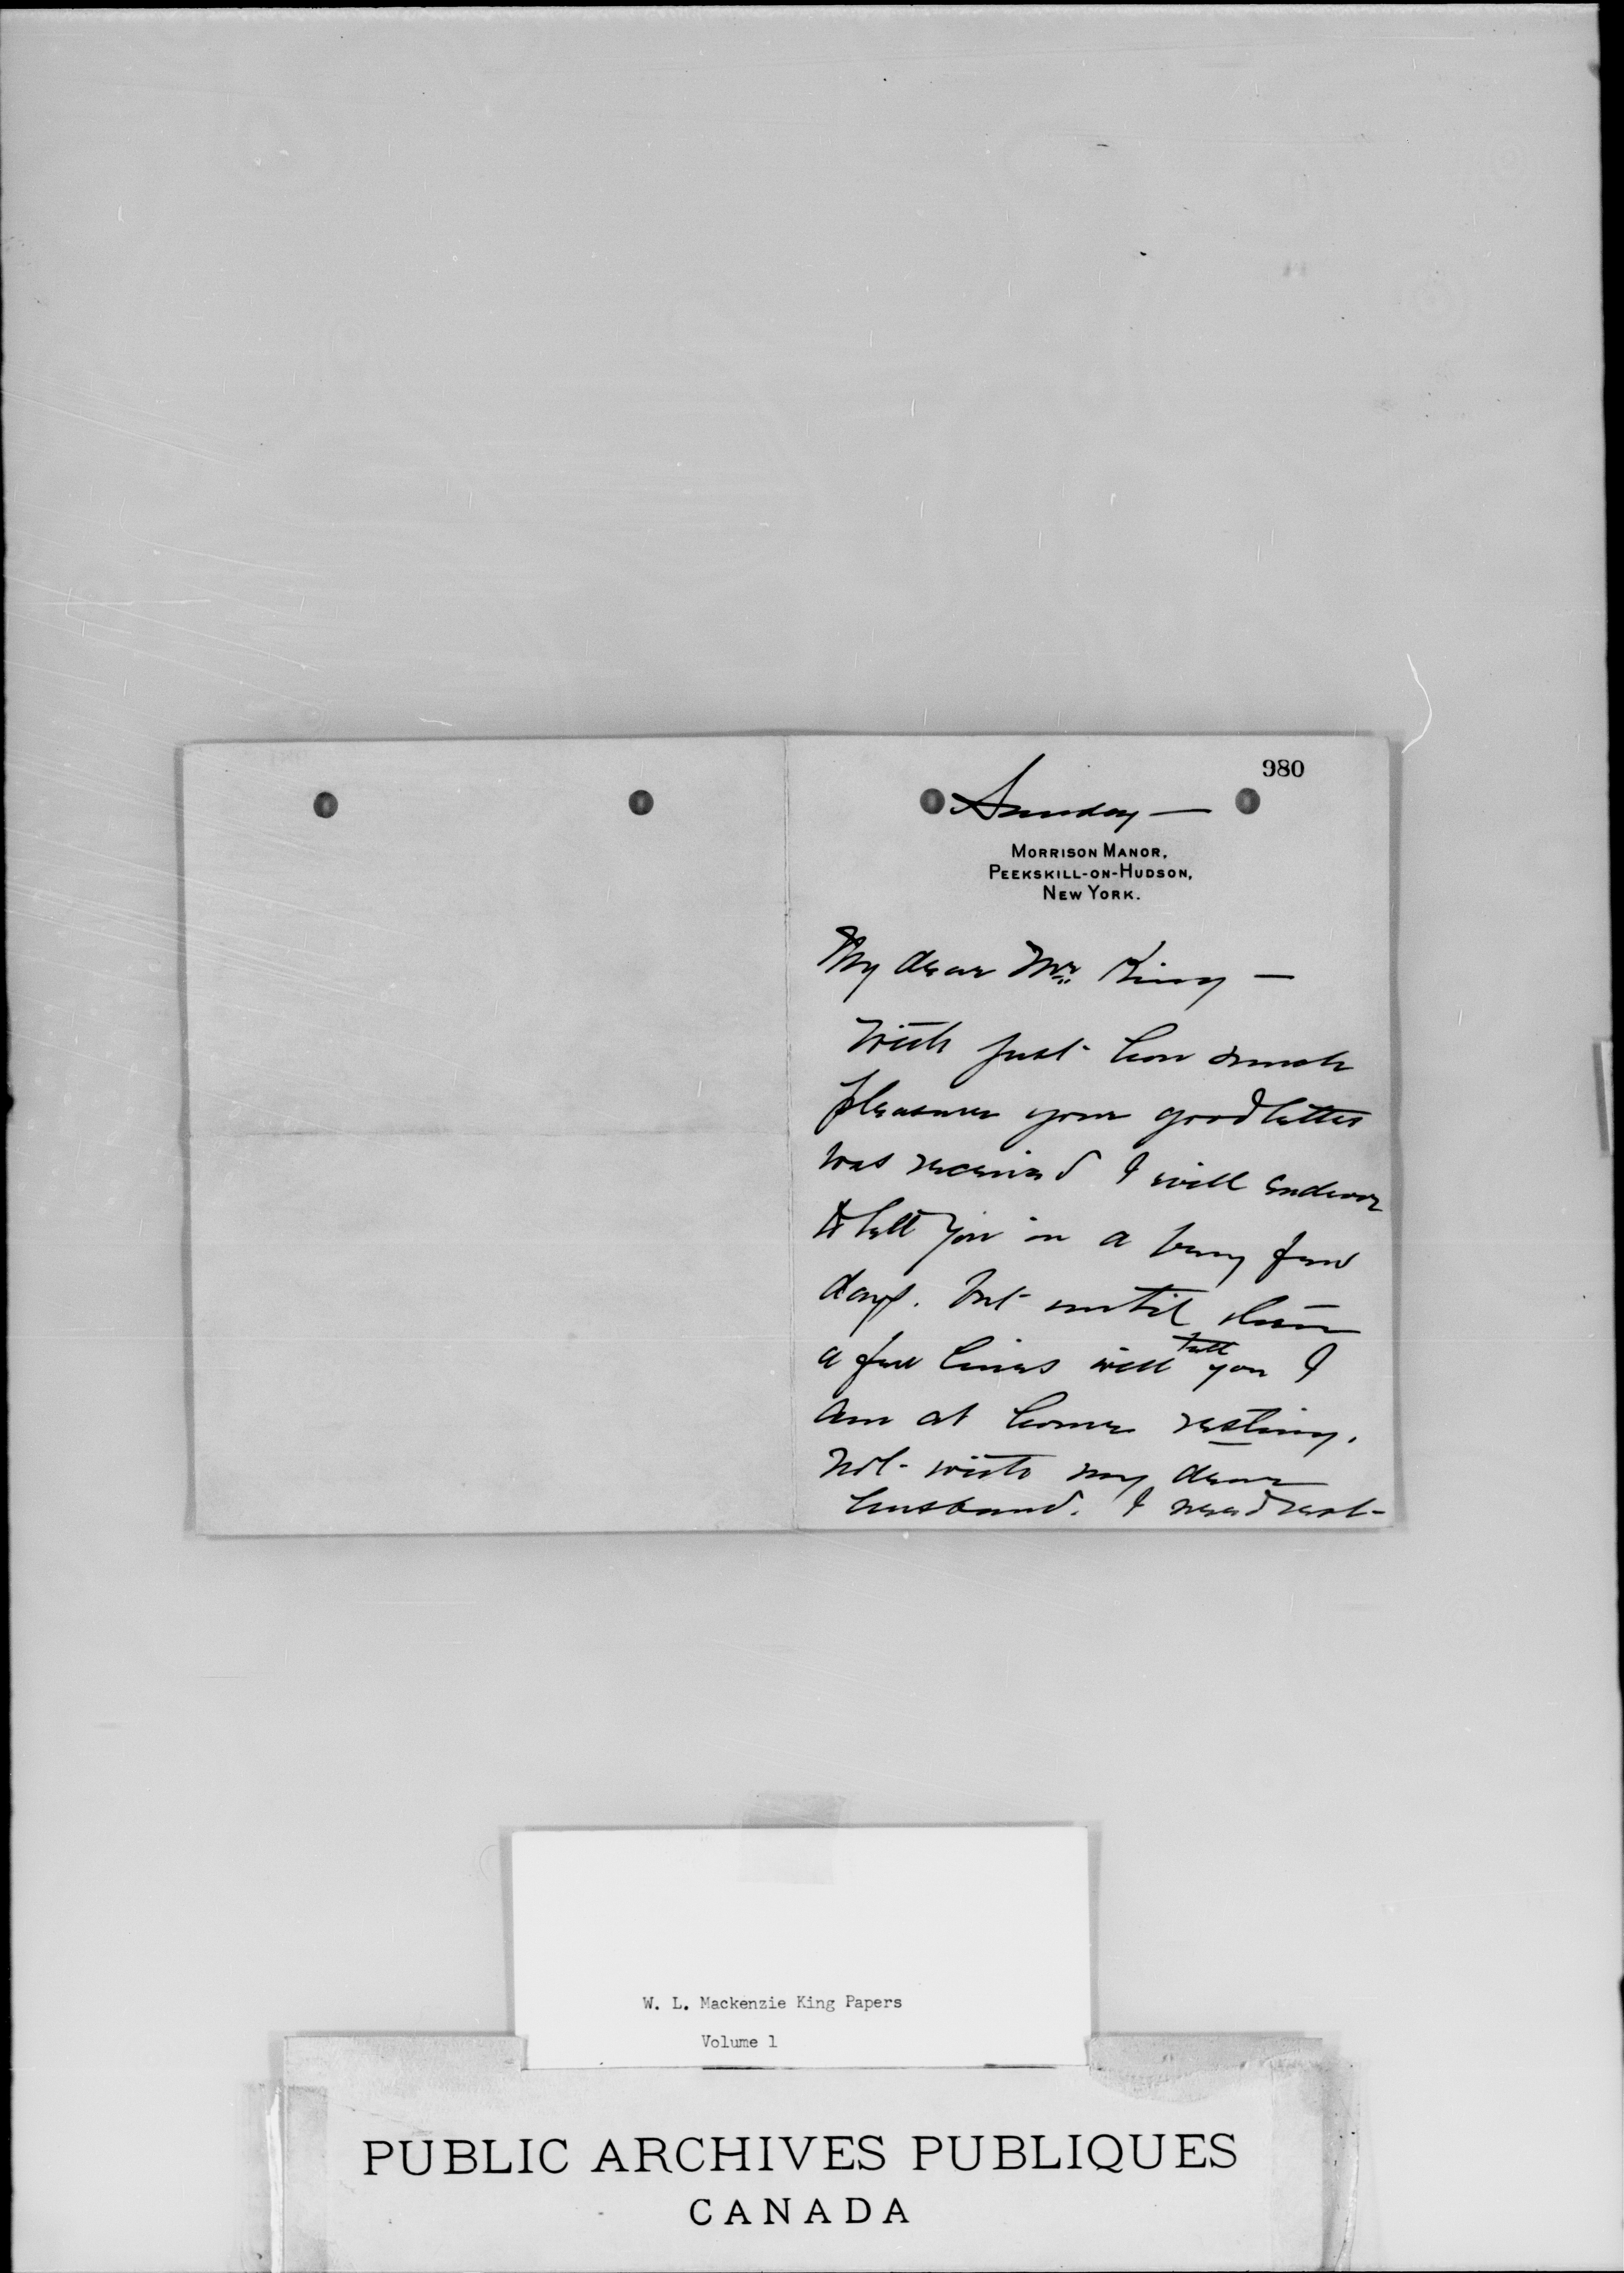 980
Sunday —
MORRISON MANOR,
PEEKSKILL-ON-HUDSON,
NEW YORK.
My dear Mr. King —
With just how much
pleasure your good letter
was received I will endeavor
to tell you in a very few
days. but until then
a few lines will tell you I
am at home resting.
not with my dear
husband. I need rest-
W. L. Mackenzie King Papers
Volume 1
PUBLIC ARCHIVES PUBLIQUES
CANADA